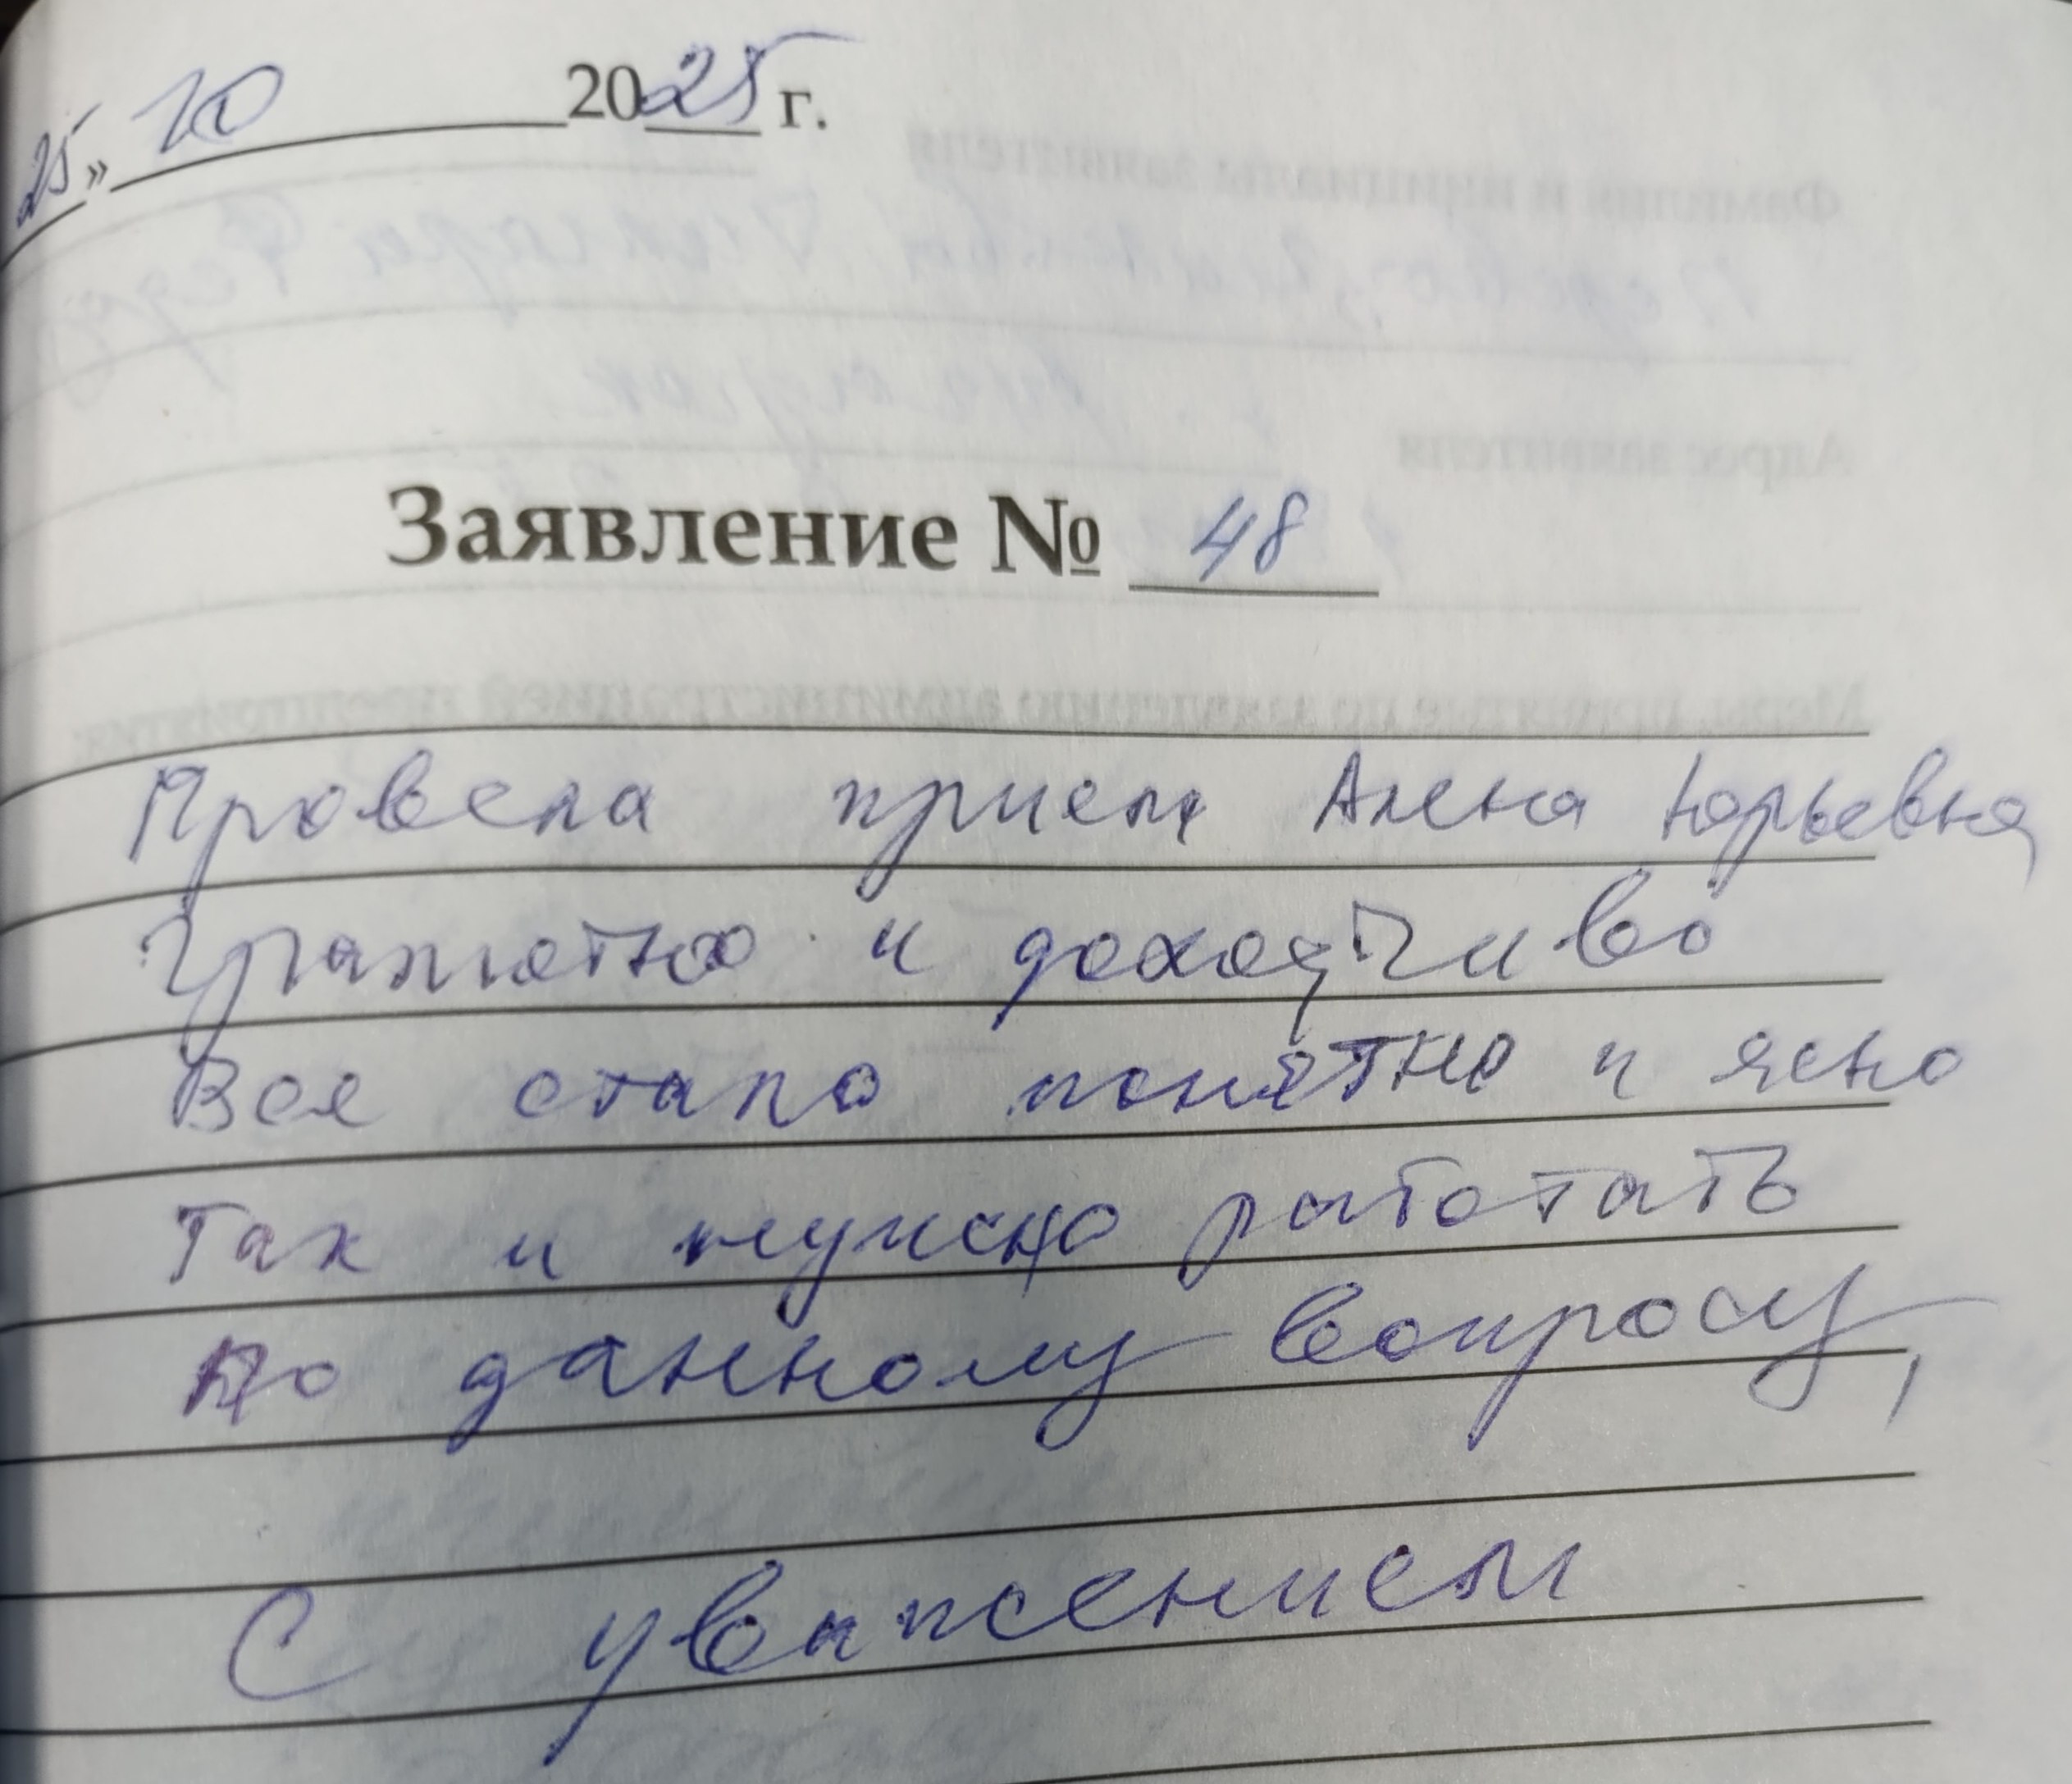 25» 10 2025 г.
Заявление № 48
Провела прием Алена Юрьевна
Грамотно и доходчиво
Все стало понятно и ясно
Так и нужно работать
по данному вопросу,
С уважением